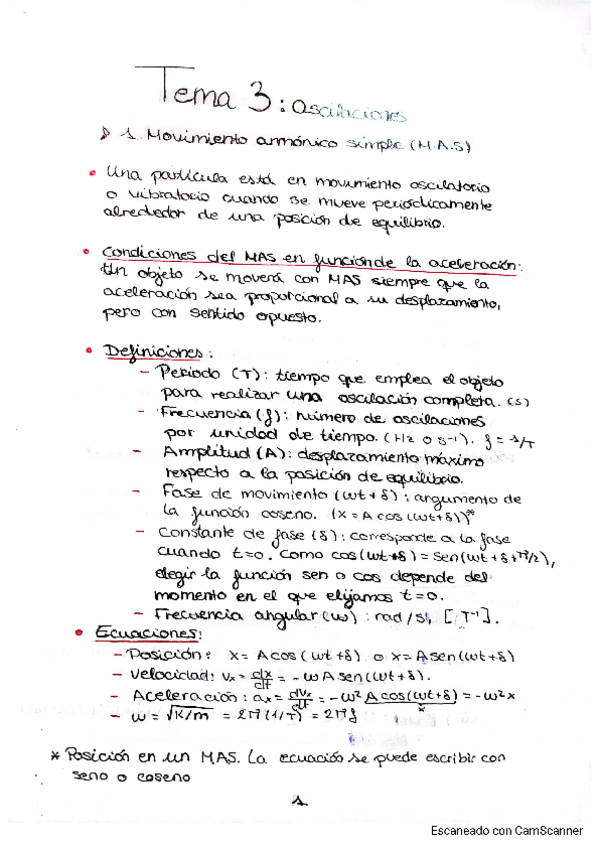 Tema 3: Oscilaciones
1. Movimiento armónico simple (M.A.S)
• Una partícula está en movimiento oscilatorio
o vibratorio cuando se mueve periódicamente
alrededor de una posición de equilibrio.
• Condiciones del MAS en función de la aceleración:
Un objeto se moverá con MAS siempre que la
aceleración sea proporcional a su desplazamiento,
pero con sentido opuesto.
• Definiciones:
- Periodo (T): tiempo que emplea el objeto
para realizar una oscilación completa. (s)
- Frecuencia (f): número de oscilaciones
por unidad de tiempo. (Hz o s⁻¹). f = 1/T
- Amplitud (A): desplazamiento máximo
respecto a la posición de equilibrio.
- Fase de movimiento (wt + δ): argumento de
la función coseno. (x = A cos (wt+δ))*
- Constante de fase (δ): corresponde a la fase
cuando t=0. Como cos(wt+δ) = sen(wt+δ+π/2),
elegir la función sen o cos depende del
momento en el que elijamos t=0.
- Frecuencia angular (w): rad/s, [T⁻¹].
• Ecuaciones:
- Posición: x = A cos (wt+δ) o x = A sen (wt+δ)
- Velocidad: vx = dx/dt = -wA sen(wt+δ).
- Aceleración: ax = dvx/dt = -w² A cos(wt+δ) = -w²x
x
- w = √k/m = 2π(1/T) = 2πf
* Posición en un MAS. La ecuación se puede escribir con
seno o coseno
1
Escaneado con CamScanner